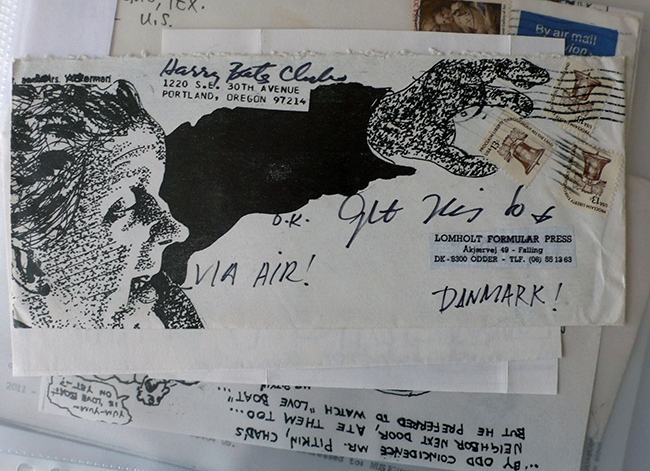 TEX.
U.S.
By air mail
avion
Mrs.
Harry Bates Club
1220 S.E. 30TH AVENUE
PORTLAND, OREGON 97214
13c
13c
O.K. get this to
LOMHOLT FORMULAR PRESS
Åkjærvej 49 - Falling
DK-8300 ODDER - TLF. (06) 55 13 63
VIA AIR!
DANMARK!
"BY ODD COINCIDENCE MR. PITKIN, CHAB'S
NEIGHBOR NEXT DOOR, ATE THEM TOO...
BUT HE PREFERRED TO WATCH "LOVE BOAT"...
YUM-YUM-
IS "LOVE BOAT"
ON YET-?